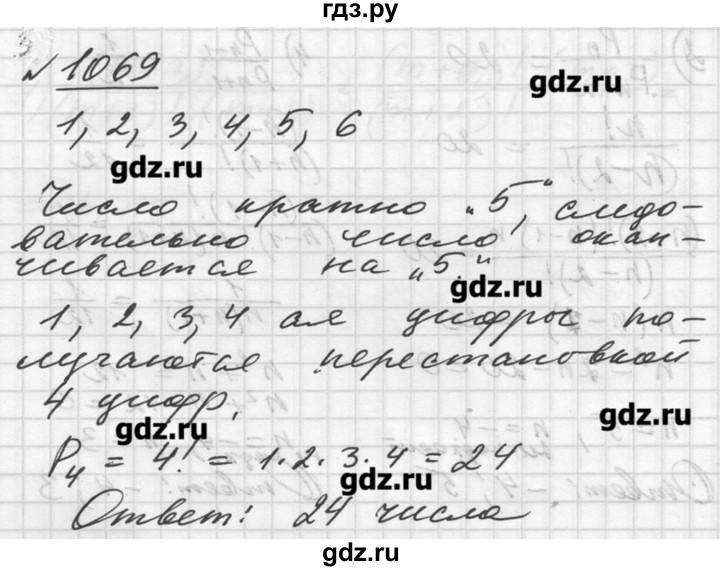 гдз.ру
№ 1069
gdz.ru
1, 2, 3, 4, 5, 6
gdz.ru
Число кратно „5“, следо-
вательно число окан-
чивается на „5“.
gdz.ru
1, 2, 3, 4 ая цифры по-
лучаются перестановкой
4 цифр.
gdz.ru
gdz.ru
P₄ = 4! = 1·2·3·4 = 24
gdz.ru
Ответ: 24 числа
gdz.ru